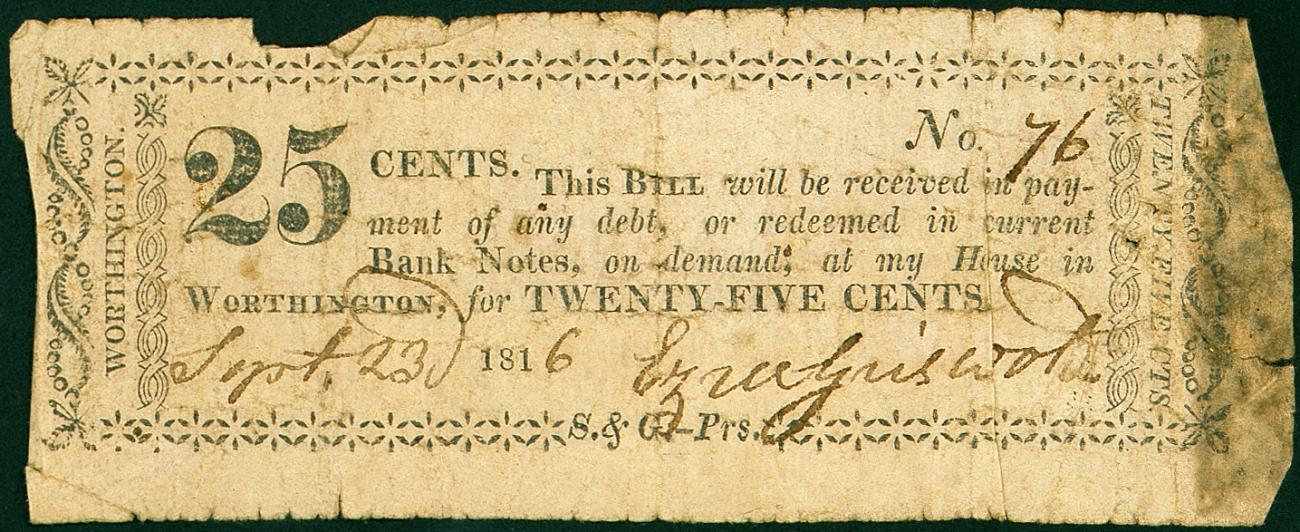 WORTHINGTON.
No. 76
25 CENTS. This BILL will be received in pay-
ment of any debt, or redeemed in current
Bank Notes, on demand, at my House in
WORTHINGTON, for TWENTY-FIVE CENTS
Sept. 23d 1816 Ezra Griswold
S. & G.-Prs.
TWENTY FIVE CTS